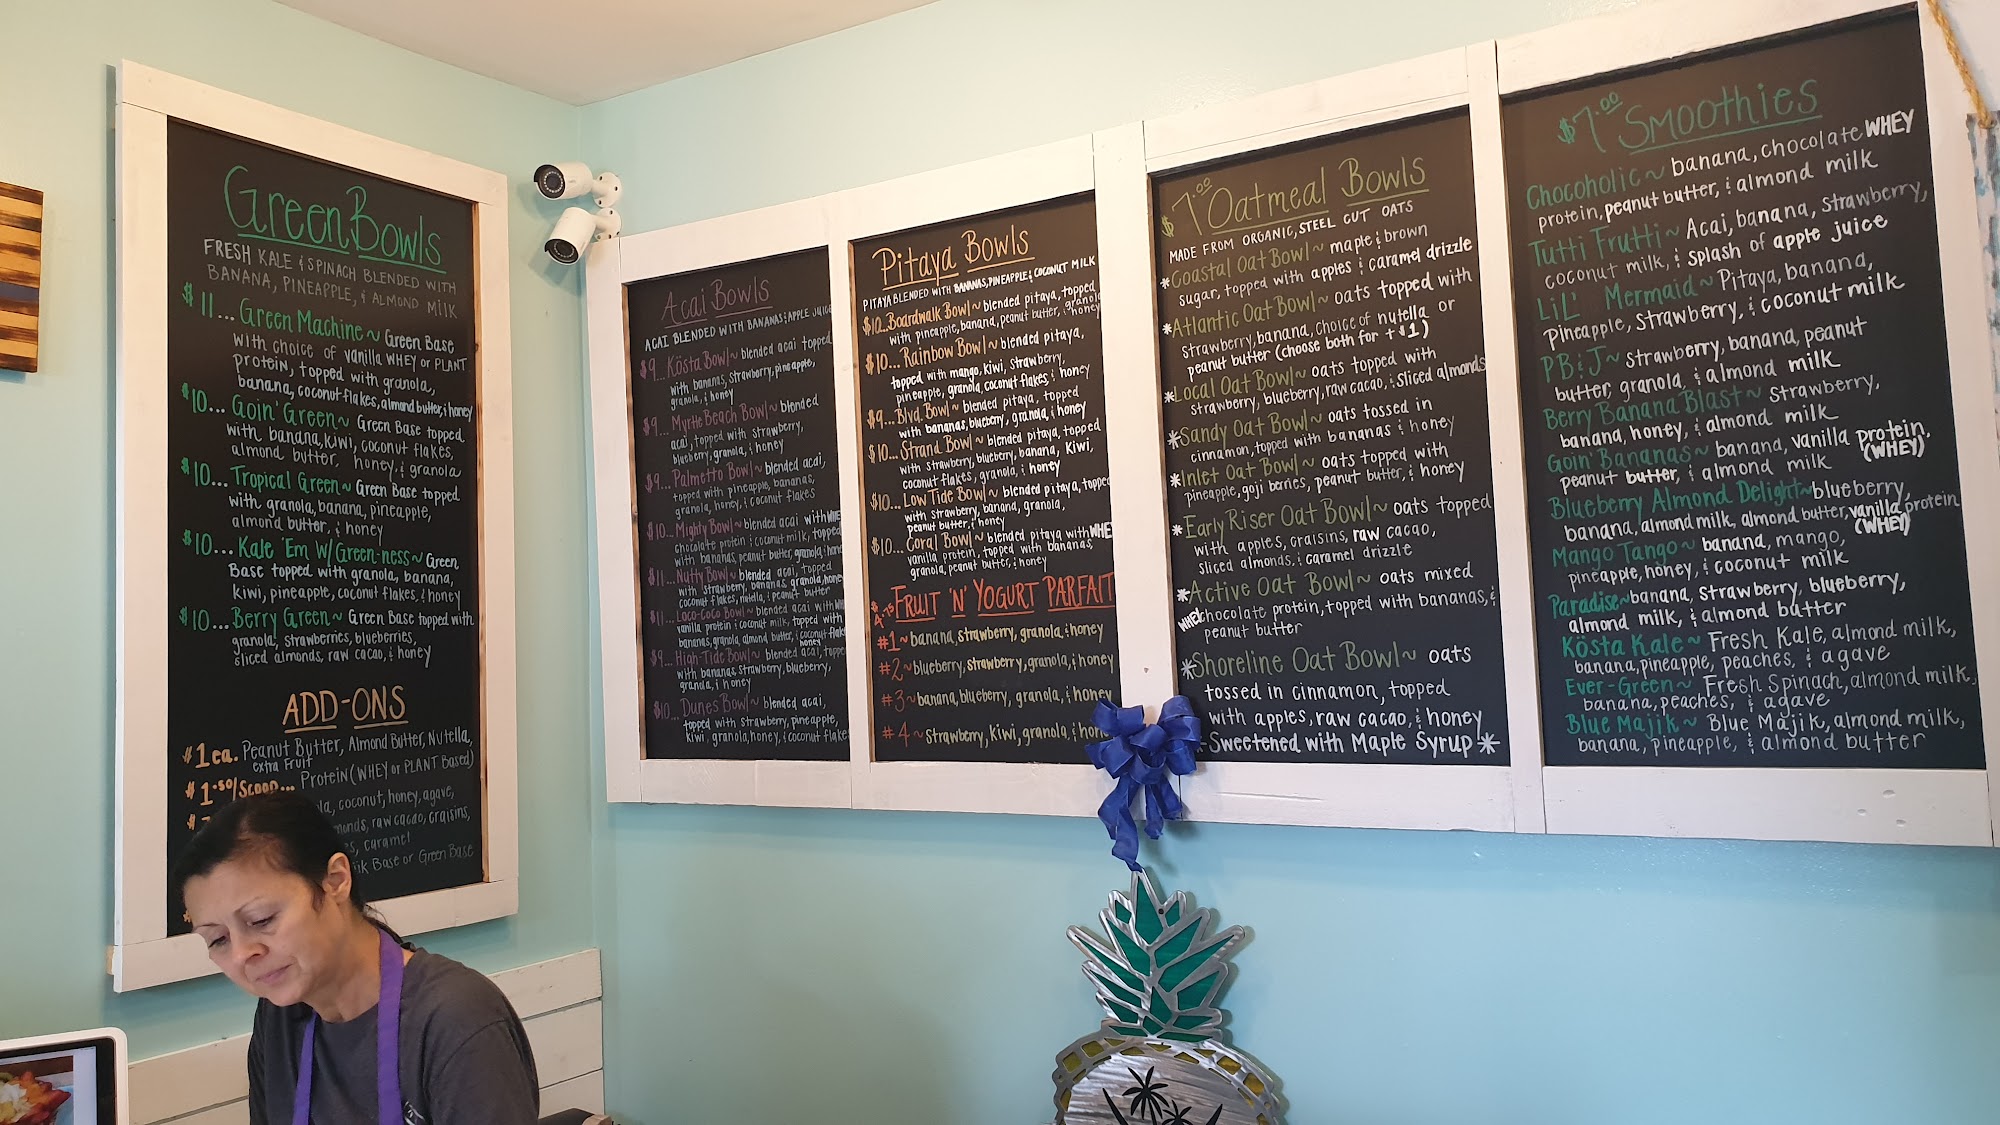 Green Bowls
FRESH KALE & SPINACH BLENDED WITH
BANANA, PINEAPPLE, & ALMOND MILK
$11... Green Machine ~ Green Base
with choice of vanilla WHEY or PLANT
protein, topped with granola,
banana, coconut flakes, almond butter, & honey
$10... Goin' Green ~ Green Base topped
with banana, kiwi, coconut flakes,
almond butter, honey, & granola
$10... Tropical Green ~ Green Base topped
with granola, banana, pineapple,
almond butter, & honey
$10... Kale 'Em W/ Green-ness ~ Green
Base topped with granola, banana,
kiwi, pineapple, coconut flakes, & honey
$10... Berry Green ~ Green Base topped with
granola, strawberries, blueberries,
sliced almonds, raw cacao, & honey
ADD-ONS
$1 ea. Peanut Butter, Almond Butter, Nutella,
extra Fruit
$1.50/Scoop... Protein (WHEY or PLANT Based)
coconut, honey, agave,
raw cacao, craisins,
caramel
Base or Green Base
Acai Bowls
ACAI BLENDED WITH BANANAS & APPLE JUICE
$9... Kösta Bowl ~ blended acai topped
with bananas, strawberry, pineapple,
granola, & honey
$9... Myrtle Beach Bowl ~ blended
acai, topped with strawberry,
blueberry, granola, & honey
$9... Palmetto Bowl ~ blended acai,
topped with pineapple, bananas,
granola, honey, & coconut flakes
$10... Mighty Bowl ~ blended acai with WHEY
chocolate protein & coconut milk, topped
with bananas, peanut butter, granola, & honey
$11... Nutty Bowl ~ blended acai, topped
with strawberry, bananas, granola, honey
coconut flakes, nutella, & peanut butter
$11... Loco-Coco Bowl ~ blended acai with WHEY
vanilla protein & coconut milk, topped with
bananas, granola, almond butter, & coconut flakes
honey
$9... High-Tide Bowl ~ blended acai, topped
with bananas, strawberry, blueberry,
granola, & honey
$10... Dunes Bowl ~ blended acai,
topped with strawberry, pineapple,
kiwi, granola, honey, & coconut flakes
Pitaya Bowls
PITAYA BLENDED WITH BANANAS, PINEAPPLE & COCONUT MILK
$10... Boardwalk Bowl ~ blended pitaya, topped
with pineapple, banana, peanut butter, & granola
honey
$10... Rainbow Bowl ~ blended pitaya,
topped with mango, kiwi, strawberry,
pineapple, granola, coconut flakes, & honey
$9... Blvd. Bowl ~ blended pitaya, topped
with bananas, blueberry, granola, & honey
$10... Strand Bowl ~ blended pitaya, topped
with strawberry, blueberry, banana, kiwi,
coconut flakes, granola, & honey
$10... Low Tide Bowl ~ blended pitaya, topped
with strawberry, banana, granola,
peanut butter, & honey
$10... Coral Bowl ~ blended pitaya with WHEY
vanilla protein, topped with bananas,
granola, peanut butter, & honey
$4.75 FRUIT 'N' YOGURT PARFAIT
#1 ~ banana, strawberry, granola, & honey
#2 ~ blueberry, strawberry, granola, & honey
#3 ~ banana, blueberry, granola, & honey
#4 ~ strawberry, kiwi, granola, & honey
$7.00 Oatmeal Bowls
MADE FROM ORGANIC, STEEL CUT OATS
*Coastal Oat Bowl ~ maple & brown
sugar, topped with apples & caramel drizzle
*Atlantic Oat Bowl ~ oats topped with
strawberry, banana, choice of nutella or
peanut butter (choose both for +$1)
*Local Oat Bowl ~ oats topped with
strawberry, blueberry, raw cacao, & sliced almonds
*Sandy Oat Bowl ~ oats tossed in
cinnamon, topped with bananas & honey
*Inlet Oat Bowl ~ oats topped with
pineapple, goji berries, peanut butter, & honey
*Early Riser Oat Bowl ~ oats topped
with apples, craisins, raw cacao,
sliced almonds, & caramel drizzle
*Active Oat Bowl ~ oats mixed
WHEY chocolate protein, topped with bananas, &
peanut butter
*Shoreline Oat Bowl ~ oats
tossed in cinnamon, topped
with apples, raw cacao, & honey
*Sweetened with Maple Syrup*
$7.00 Smoothies
Chocoholic ~ banana, chocolate WHEY
protein, peanut butter, & almond milk
Tutti Frutti ~ Acai, banana, strawberry,
coconut milk, & splash of apple juice
Lil' Mermaid ~ Pitaya, banana,
pineapple, strawberry, & coconut milk
PB & J ~ strawberry, banana, peanut
butter, granola, & almond milk
Berry Banana Blast ~ strawberry,
banana, honey, & almond milk
Goin' Bananas ~ banana, vanilla protein,
(WHEY)
peanut butter, & almond milk
Blueberry Almond Delight ~ blueberry,
banana, almond milk, almond butter, vanilla protein
(WHEY)
Mango Tango ~ banana, mango,
pineapple, honey, & coconut milk
Paradise ~ banana, strawberry, blueberry,
almond milk, & almond butter
Kösta Kale ~ Fresh Kale, almond milk,
banana, pineapple, peaches, & agave
Ever-Green ~ Fresh Spinach, almond milk,
banana, peaches, & agave
Blue Majik ~ Blue Majik, almond milk,
banana, pineapple, & almond butter